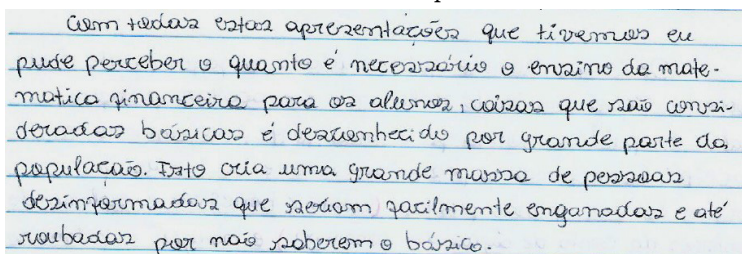 Com todas estas apresentações que tivemos eu
pude perceber o quanto é necessário o ensino da mate-
matica financeira para os alunos, coisas que são consi-
deradas básicas é desconhecido por grande parte da
população. Isto cria uma grande massa de pessoas
desinformadas que seriam facilmente enganadas e até
roubadas por não saberem o básico.